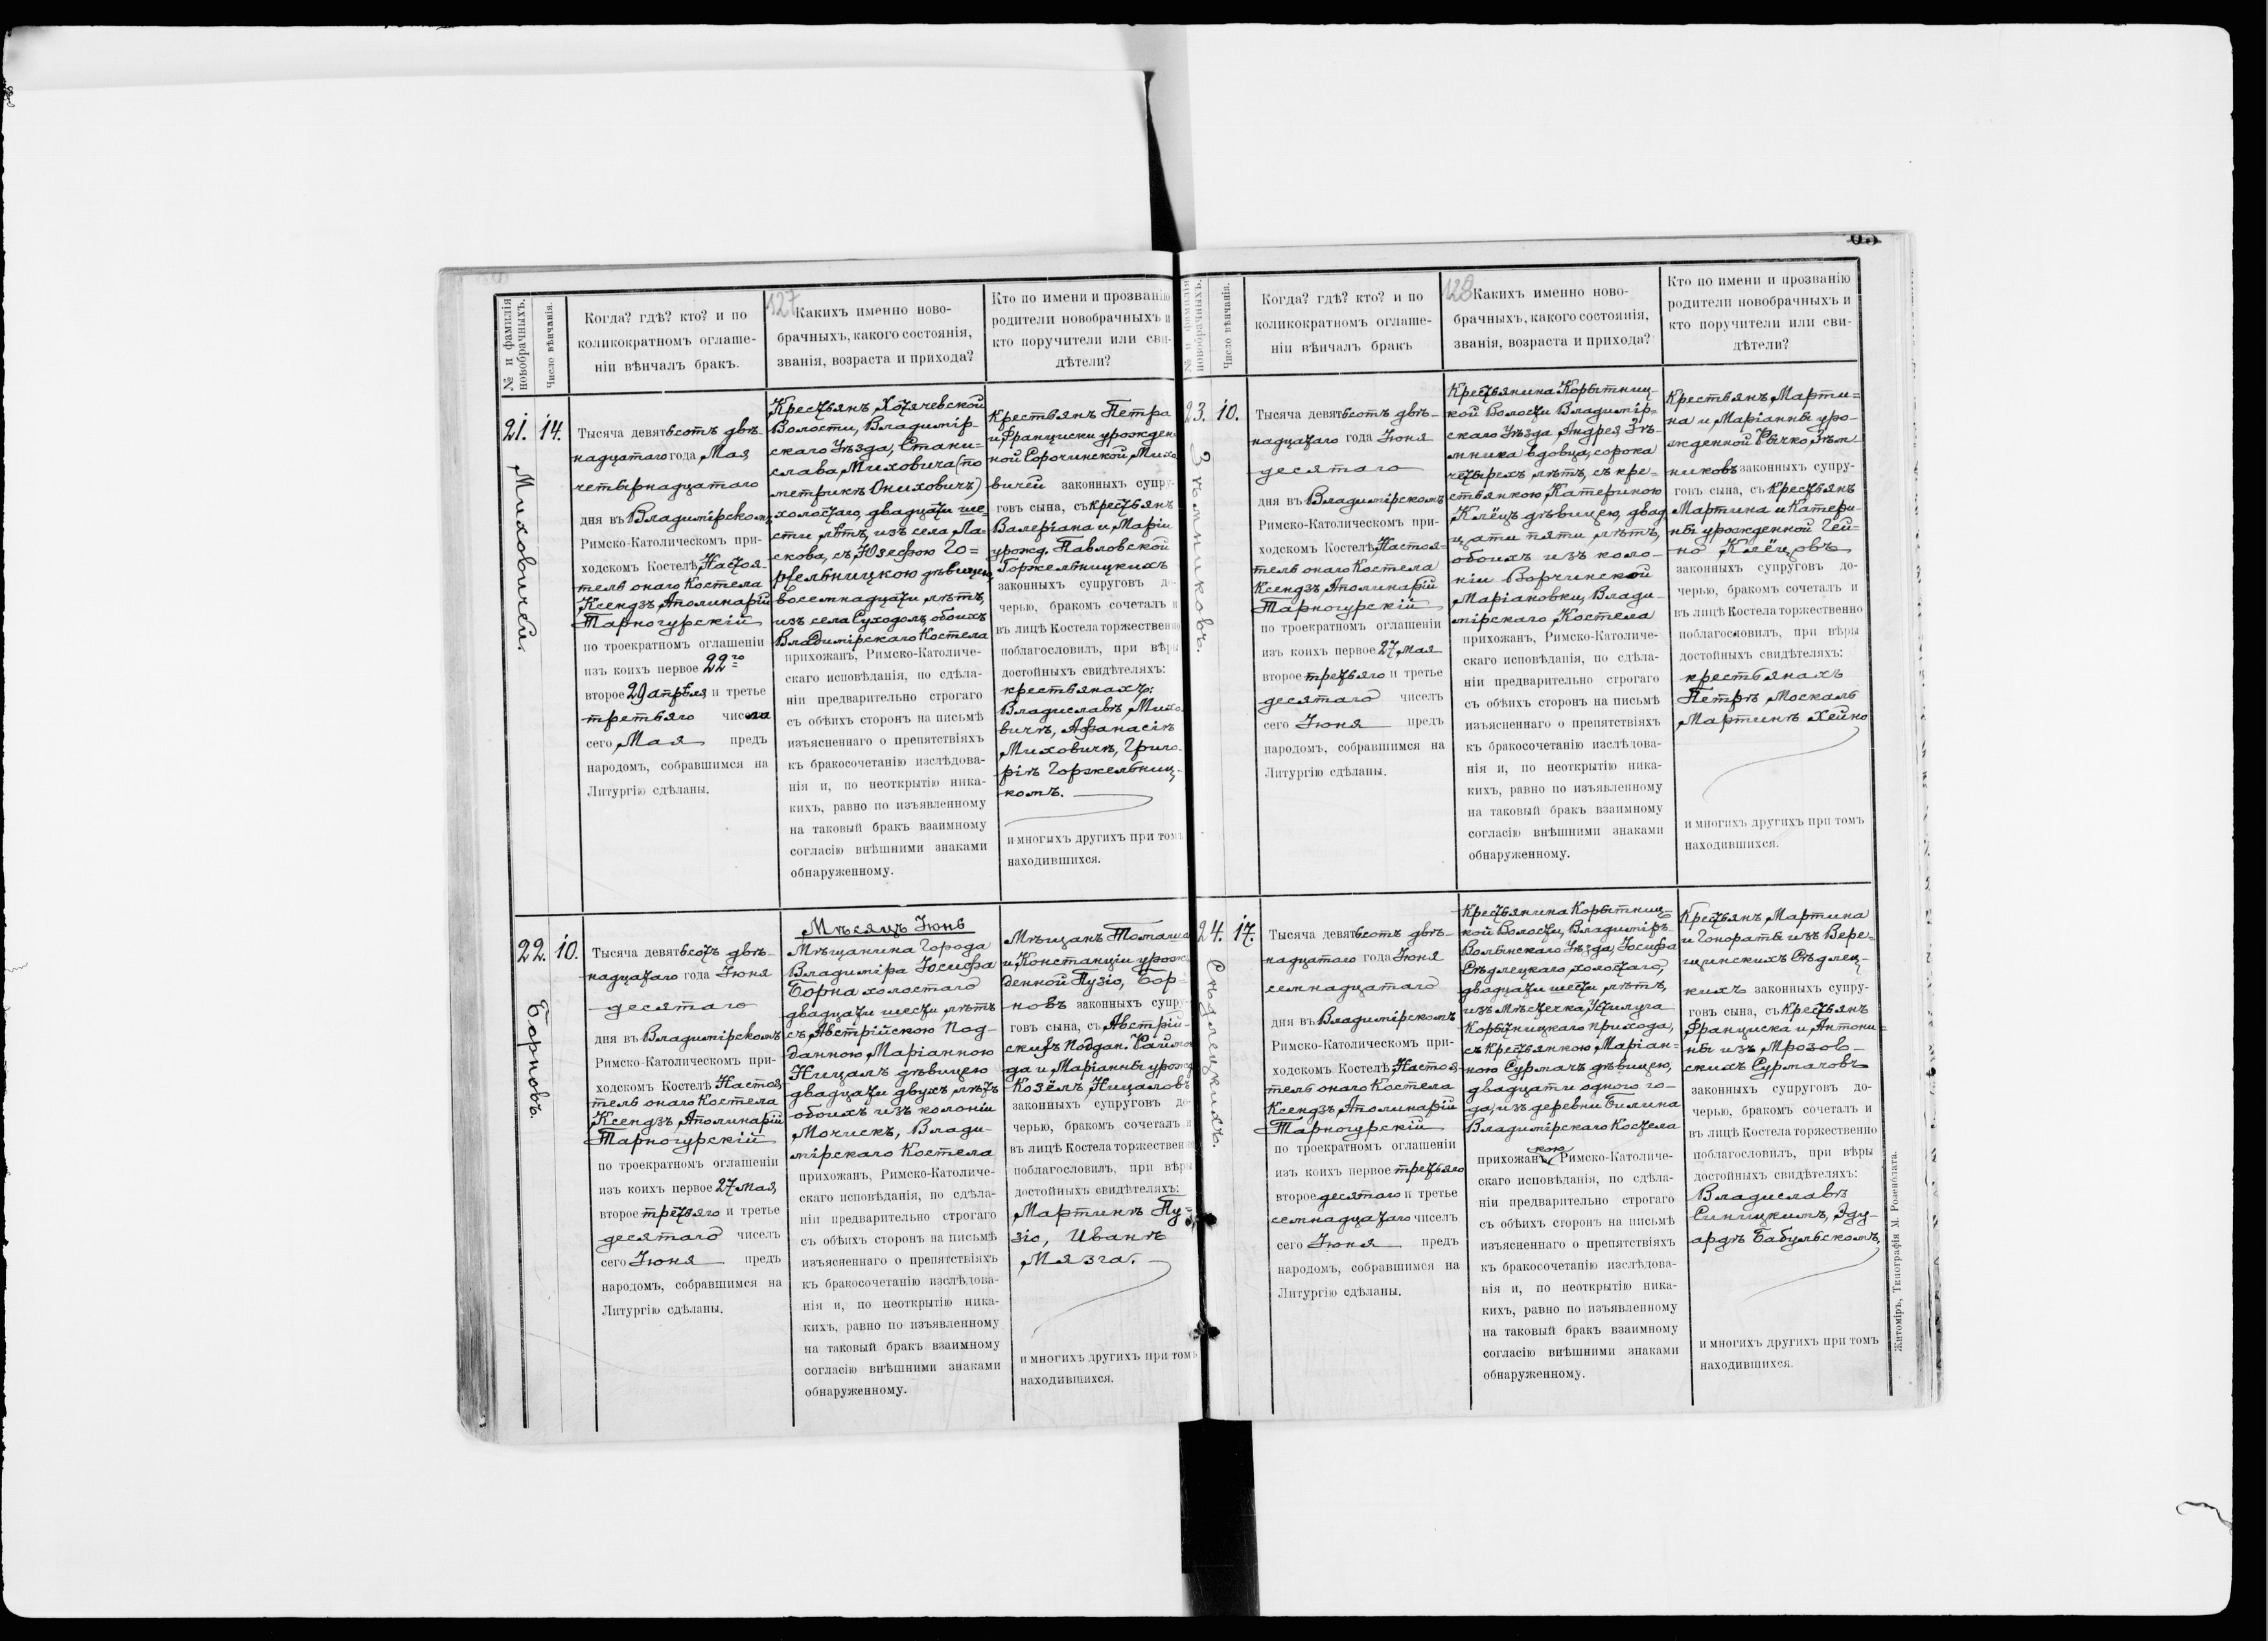 № и фамилія новобрачныхъ.
Число вѣнчанія.
Когда? гдѣ? кто? и по
коликократномъ оглаше-
ніи вѣнчалъ бракъ.
127
Какихъ именно ново-
брачныхъ, какого состоянія,
званія, возраста и прихода?
Кто по имени и прозванію
родители новобрачныхъ и
кто поручители или сви-
дѣтели?
21.
Миховичей.
14.
Тысяча девятьсотъ двѣ-
надцатаго года Мая
четырнадцатаго
дня въ Владимірскомъ
Римско-Католическомъ при-
ходскомъ Костелѣ Настоя-
тель онаго Костела
Ксендзъ Аполинарій
Тарногурскій
по троекратномъ оглашеніи
изъ коихъ первое 22го
второе 29 апрѣля и третье
третьяго числа
сего Мая предъ
народомъ, собравшимся на
Литургію сдѣланы.
Крестьянъ Хотячевской
Волости, Владимір-
скаго Уѣзда, Стани-
слава Миховича (по
метрикѣ Онихович)
холостаго, двадцати ше-
сти лѣтъ, изъ села Ла-
скова, съ Юзефою Го=
ржельницкою дѣвицею
восемнадцати лѣтъ,
изъ села Суходолъ, обоихъ
Владимірскаго Костела
прихожанъ, Римско-Католиче-
скаго исповѣданія, по сдѣла-
ніи предварительно строгаго
съ обѣихъ сторонъ на письмѣ
изъясненнаго о препятствіяхъ
къ бракосочетанію изслѣдова-
нія и, по неоткрытію ника-
кихъ, равно по изъявленному
на таковый бракъ взаимному
согласію внѣшними знаками
обнаруженному.
Крестьянъ Петра
и Франциски урожден
ной Сорочинской, Михо
вичей законныхъ супру-
говъ сына, съ Крестьянъ
Валеріана и Маріи
урожд. Павловской
Горжельницкихъ
законныхъ супруговъ до-
черью, бракомъ сочеталъ и
въ лицѣ Костела торжественно
поблагословилъ, при вѣры
достойныхъ свидѣтеляхъ:
крестьянахъ:
Владиславѣ Михо-
вичѣ, Афанасіѣ
Миховичѣ, Григо-
ріѣ Горжельниц-
комъ.
и многихъ другихъ при томъ
находившихся.
22.
Борновъ.
10.
Тысяча девятьсотъ двѣ-
надцатаго года Іюня
десятаго
дня въ Владимірскомъ
Римско-Католическомъ при-
ходскомъ Костелѣ Настоя-
тель онаго Костела
Ксендзъ Аполинарій
Тарногурскій
по троекратномъ оглашеніи
изъ коихъ первое 27 Мая,
второе третьяго и третье
десятаго числъ
сего Іюня предъ
народомъ, собравшимся на
Литургію сдѣланы.
Мѣсяцъ Іюнь
Мѣщанина Города
Владиміра Іосифа
Борна холостаго
двадцати шести лѣтъ
съ Австрійскою Под-
данною Маріанною
Ницалъ дѣвицею
двадцати двухъ лѣтъ
обоихъ изъ колоніи
Мочискъ, Влади-
мірскаго Костела
прихожанъ, Римско-Католиче-
скаго исповѣданія, по сдѣла-
ніи предварительно строгаго
съ обѣихъ сторонъ на письмѣ
изъясненнаго о препятствіяхъ
къ бракосочетанію изслѣдова-
нія и, по неоткрытію ника-
кихъ, равно по изъявленному
на таковый бракъ взаимному
согласію внѣшними знаками
обнаруженному.
Мѣщанъ Томаша
и Констанціи урож-
денной Пузіо, Бор=
новъ законныхъ супру-
говъ сына, съ Австрій-
скихъ Поддан. Раймон
да и Маріанны урожд
Козёлъ, Ницаловъ
законныхъ супруговъ до-
черью, бракомъ сочеталъ и
въ лицѣ Костела торжественно
поблагословилъ, при вѣры
достойныхъ свидѣтеляхъ:
Мартинѣ Пу=
зіо, Иванѣ
Мязга.
и многихъ другихъ при томъ
находившихся.
№ и фамилія новобрачныхъ.
Число вѣнчанія.
Когда? гдѣ? кто? и по
коликократномъ оглаше-
ніи вѣнчалъ бракъ
128
Какихъ именно ново-
брачныхъ, какого состоянія,
званія, возраста и прихода?
Кто по имени и прозванію
родители новобрачныхъ и
кто поручители или сви-
дѣтели?
23.
Зѣмниковъ.
10.
Тысяча девятьсотъ двѣ-
надцатаго года Іюня
десятаго
дня въ Владимірскомъ
Римско-Католическомъ при-
ходскомъ Костелѣ Настоя=
тель онаго Костела
Ксендзъ Аполинарій
Тарногурскій
по троекратномъ оглашеніи
изъ коихъ первое 27 Мая
второе третьяго и третье
десятаго числъ
сего Іюня предъ
народомъ, собравшимся на
Литургію сдѣланы.
Крестьянина Корытниц-
кой Волости Владимір=
скаго Уѣзда Андрея Зѣ-
мника вдовца, сорока
четырехъ лѣтъ, съ кре-
стьянкою Катериною
Клёцъ дѣвицею, двад
цати пяти лѣтъ,
обоихъ изъ коло-
ніи Ворчинской
Маріановки, Влади-
мірскаго Костела
прихожанъ, Римско-Католиче-
скаго исповѣданія, по сдѣла-
ніи предварительно строгаго
съ обѣихъ сторонъ на письмѣ
изъясненнаго о препятствіяхъ
къ бракосочетанію изслѣдова-
нія и, по неоткрытію ника-
кихъ, равно по изъявленному
на таковый бракъ взаимному
согласію внѣшними знаками
обнаруженному.
Крестьянъ Марти=
на и Маріанны уро-
жденной Рычко, Зѣм
никовъ законныхъ супру-
говъ сына, съ Крестьянъ
Мартина и Катери-
ны урожденной Гей=
но Клёцовъ
законныхъ супруговъ до-
черью, бракомъ сочеталъ и
въ лицѣ Костела торжественно
поблагословилъ, при вѣры
достойныхъ свидѣтеляхъ:
крестьянахъ
Петрѣ Москаль
Мартинѣ Хейно
и многихъ другихъ при томъ
находившихся.
24.
Сѣдлецкихъ.
17.
Тысяча девятьсотъ двѣ-
надцатаго года Іюня
семнадцатаго
дня въ Владимірскомъ
Римско-Католическомъ при-
ходскомъ Костелѣ Настоя-
тель онаго Костела
Ксендзъ Аполинарій
Тарногурскій
по троекратномъ оглашеніи
изъ коихъ первое третьяго
второе десятаго и третье
семнадцатаго числъ
сего Іюня предъ
народомъ, собравшимся на
Литургію сдѣланы.
Крестьянина Корытниц-
кой Волости, Владиміръ-
Волынскаго Уѣзда, Іосифа
Сѣдлецкаго, холостаго,
двадцати шести лѣтъ,
изъ Мѣстечка Устилуга
Корытницкаго прихода,
съ Крестьянкою Маріан=
ною Сурмачъ дѣвицею,
двадцати одного го-
да, изъ деревни Билина
Владимірскаго Костела
кою
прихожанъ, Римско-Католиче-
скаго исповѣданія, по сдѣла-
ніи предварительно строгаго
съ обѣихъ сторонъ на письмѣ
изъясненнаго о препятствіяхъ
къ бракосочетанію изслѣдова-
нія и, по неоткрытію ника-
кихъ, равно по изъявленному
на таковый бракъ взаимному
согласію внѣшними знаками
обнаруженному.
Крестьянъ Мартина
и Гонораты изъ Вере=
щинскихъ Сѣдлец-
кихъ законныхъ супру-
говъ сына, съ Крестьянъ
Франциска и Антони=
ны изъ Мрозов-
скихъ Сурмачовъ
законныхъ супруговъ до-
черью, бракомъ сочеталъ и
въ лицѣ Костела торжественно
поблагословилъ, при вѣры
достойныхъ свидѣтеляхъ:
Владиславѣ
Синицкимъ, Эду-
ардѣ Бабульскомъ.
и многихъ другихъ при томъ
находившихся.
Житоміръ, Типографія М. Розенблата.